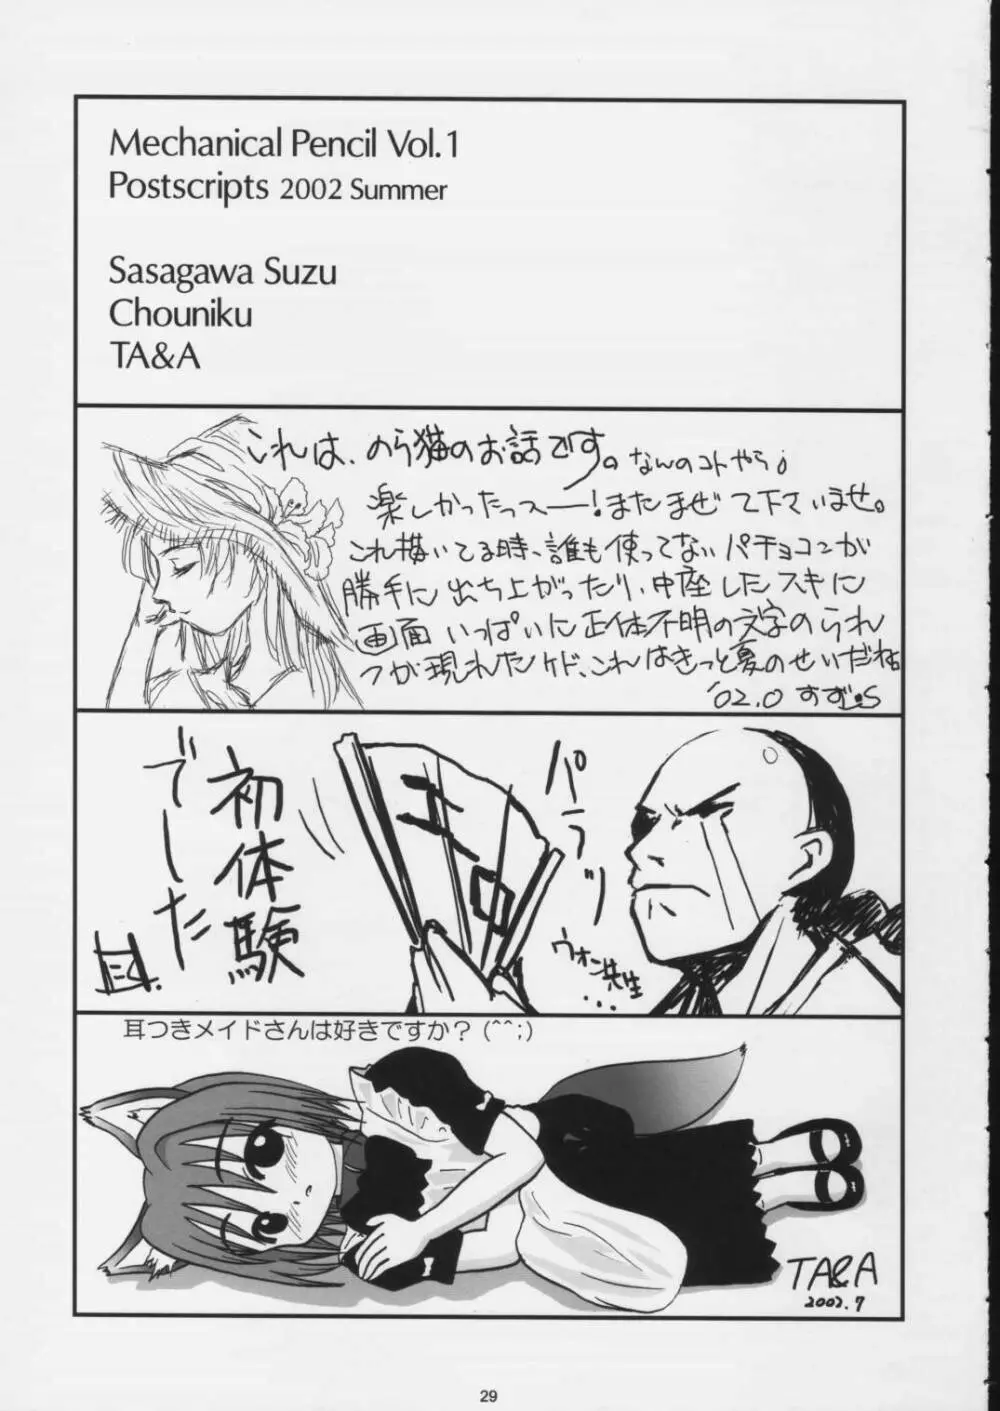 Mechanical Pencil Vol.1
Postscripts 2002 Summer
Sasagawa Suzu
Chouniku
TA&A
これは、のら猫のお話です。なんのコトやら。
楽しかったっスー!またまぜて下さいませ。
これ描いてる時、誰も使ってないパチョコンが
勝手に立ち上がったり、中座したスキに
画面いっぱいに正体不明の文字のられ
つが現れたケド、これはきっと夏のせいだね
'02.0 すず
パラッ
初体験
でした
ウォン先生
...
耳つきメイドさんは好きですか?(^^;)
TA&A
2002.7
29